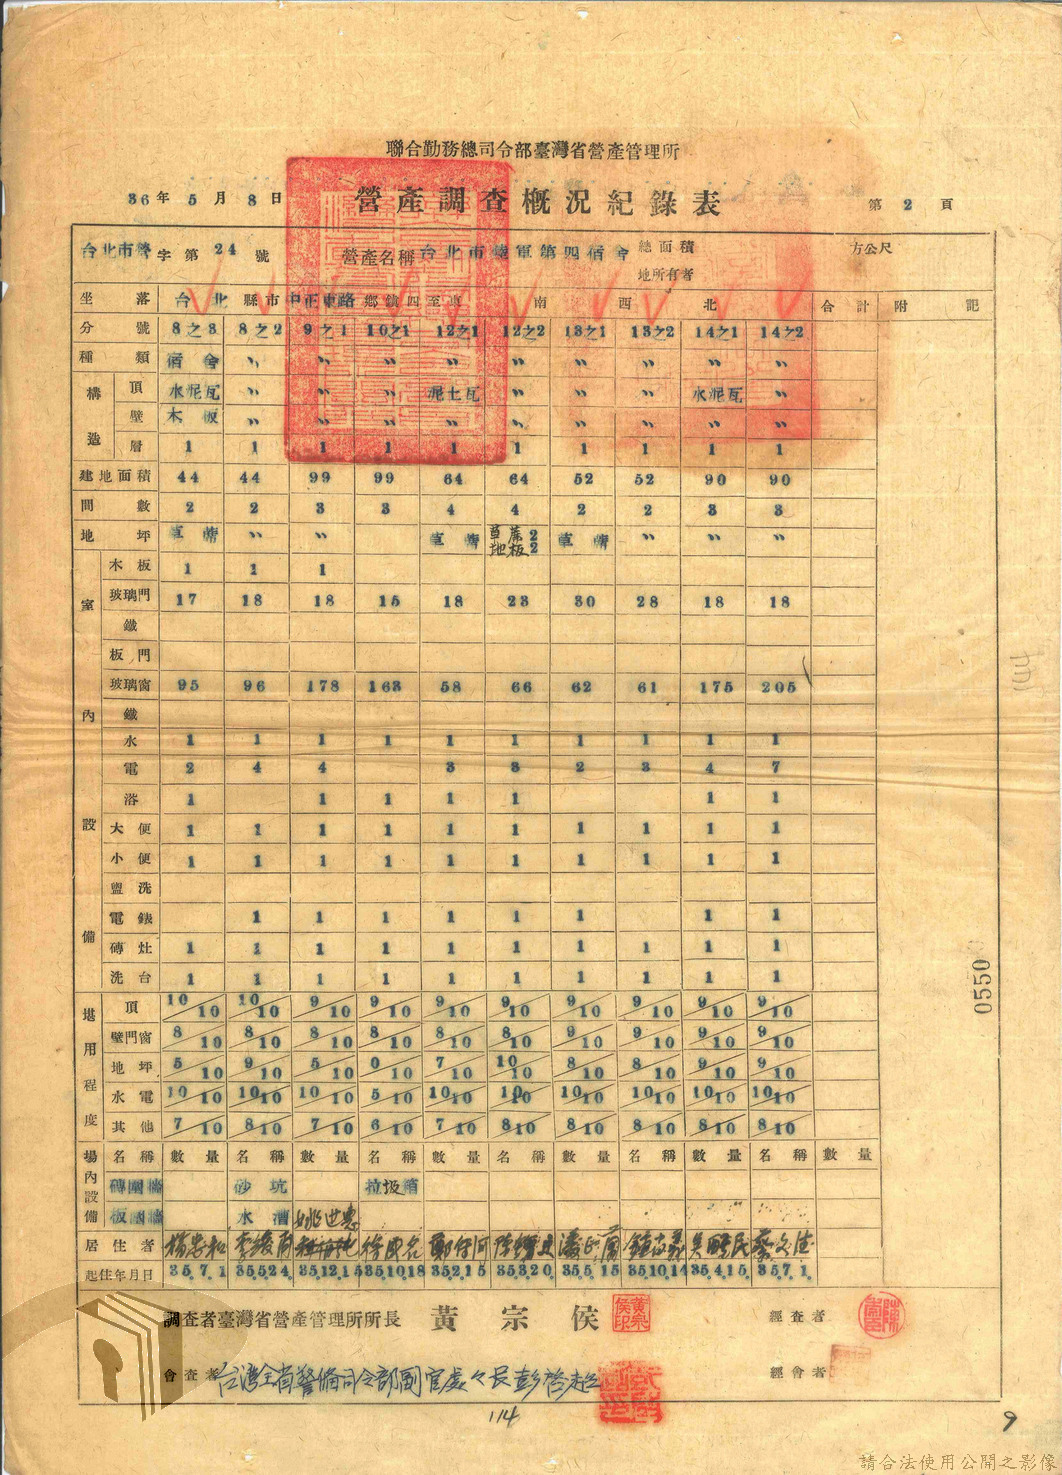 聯合勤務總司令部臺灣省營產管理所
36年5月8日 營產調查概況紀錄表 第2頁
台北市營字第24號 營產名稱 台北市陸軍第四宿舍 總面積 方公尺
地所有者
坐落 台北縣市中正東路鄉鎮四至東 南 西 北 合計 附記
分號 8之3 8之2 9之1 10之1 12之1 12之2 13之1 13之2 14之1 14之2
種類 宿舍 〃 〃 〃 〃 〃 〃 〃 〃 〃
構造 頂 水泥瓦 〃 〃 〃 泥土瓦 〃 〃 〃 水泥瓦 〃
壁 木板 〃 〃 〃 〃 〃 〃 〃 〃 〃
層 1 1 1 1 1 1 1 1 1 1
建地面積 44 44 99 99 64 64 52 52 90 90
間數 2 2 3 3 4 4 2 2 3 3
地坪 草蓆 〃 〃 草蓆 草蓆2 地板2 草蓆 〃 〃 〃
室內設備 木板 1 1 1
玻璃門 17 18 18 15 18 23 30 28 18 18
鐵
板門
玻璃窗 95 96 178 163 58 66 62 61 175 205
鐵
水 1 1 1 1 1 1 1 1 1 1
電 2 4 4 3 3 2 3 4 7
浴 1 1 1 1 1 1 1
大便 1 1 1 1 1 1 1 1 1 1
小便 1 1 1 1 1 1 1 1 1 1
盥洗
電錶 1 1 1 1 1 1 1 1
磚灶 1 1 1 1 1 1 1 1 1 1
洗台 1 1 1 1 1 1 1 1 1 1
堪用程度 頂 10/10 10/10 9/10 9/10 9/10 9/10 9/10 9/10 9/10 9/10
壁門窗 8/10 8/10 8/10 8/10 8/10 8/10 9/10 9/10 9/10 9/10
地坪 5/10 9/10 5/10 0/10 7/10 10/10 8/10 8/10 9/10 9/10
水電 10/10 10/10 10/10 5/10 10/10 10/10 10/10 10/10 10/10 10/10
其他 7/10 8/10 7/10 6/10 7/10 8/10 8/10 8/10 8/10 8/10
場內設備 名稱 數量 名稱 數量 名稱 數量 名稱 數量 名稱 數量 名稱 數量
磚圍牆 砂坑 垃圾箱
板圍牆 水漕 姚世惠
居住者 楊忠和 李俊南 徐國名 吳鵬民 蔡文佳
起住年月日 35.7.1 35.5.24. 35.12.15 35.10.18 35.2.15 35.3.20. 35.5.15 35.10.14 35.4.15. 35.7.1.
調查者臺灣省營產管理所所長 黃宗侯 經查者
會查者 台灣全省警備司令部副官處々長彭啓超 經會者
114
9
0550
請合法使用公開之影像